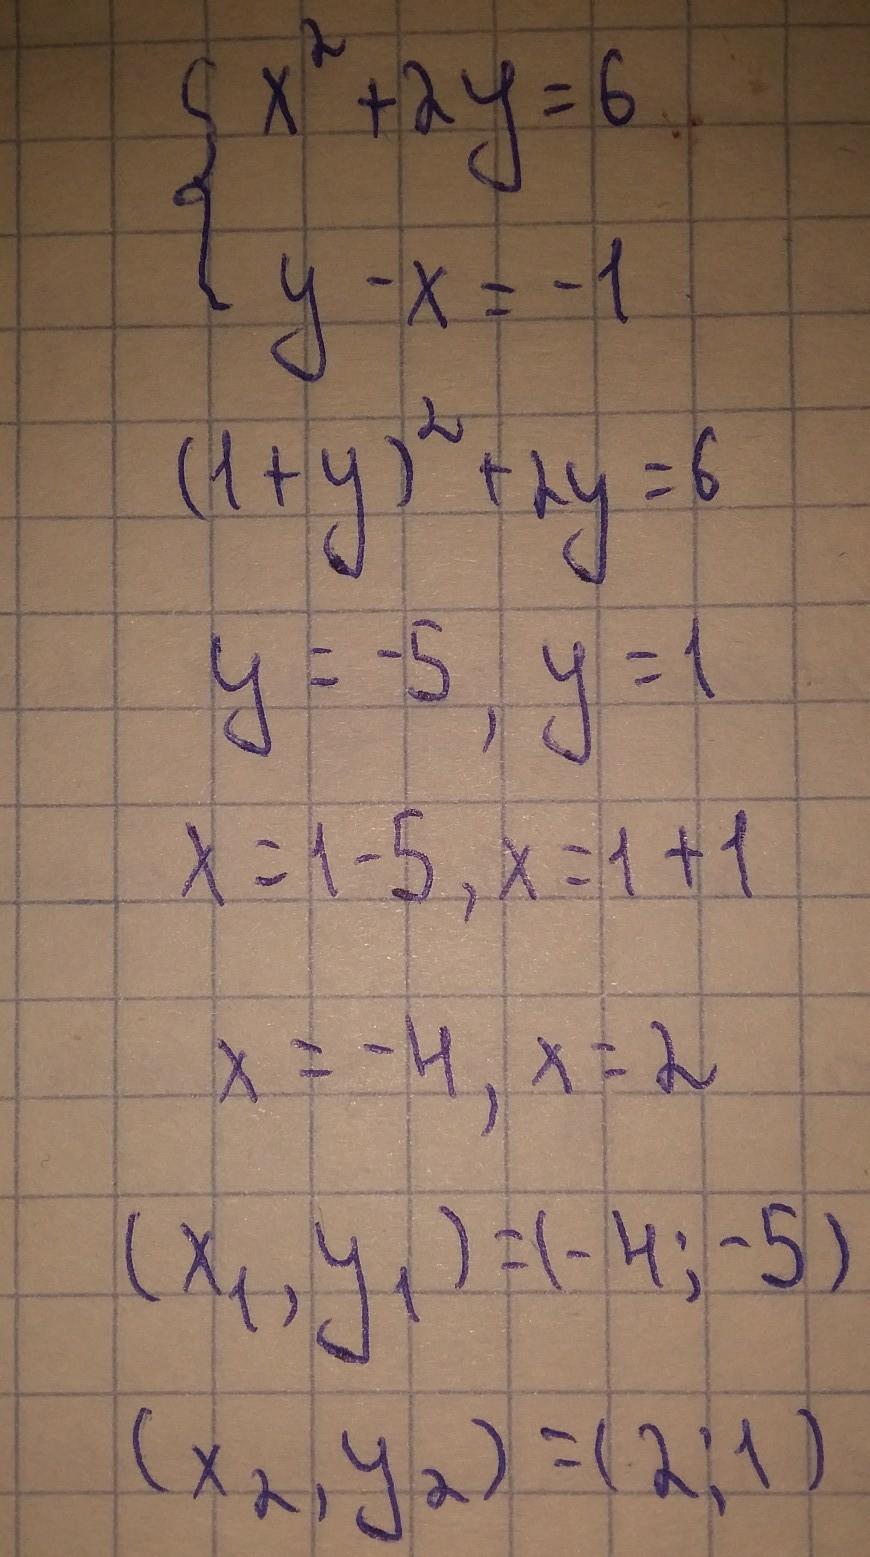 { x² + 2y = 6
y - x = -1
(1 + y)² + 2y = 6
y = -5, y = 1
x = 1 - 5, x = 1 + 1
x = -4, x = 2
(x₁, y₁) = (-4; -5)
(x₂, y₂) = (2; 1)